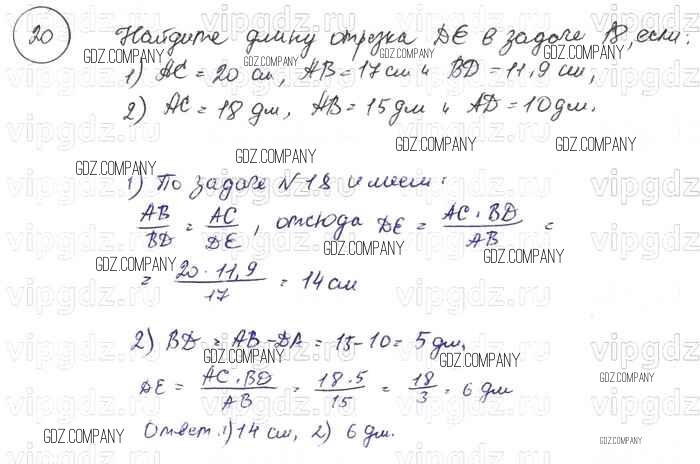 20 Найдите длину отрезка DE в задаче 18, если:
1) AC = 20 см, AB = 17 см и BD = 11,9 см;
2) AC = 18 дм, AB = 15 дм и AD = 10 дм.
1) По задаче N 18 имеем:
AB/BD = AC/DE, отсюда DE = AC·BD/AB =
= 20·11,9/17 = 14 см
2) BD = AB-DA = 15-10 = 5 дм,
DE = AC·BD/AB = 18·5/15 = 18/3 = 6 дм
Ответ: 1) 14 см, 2) 6 дм.